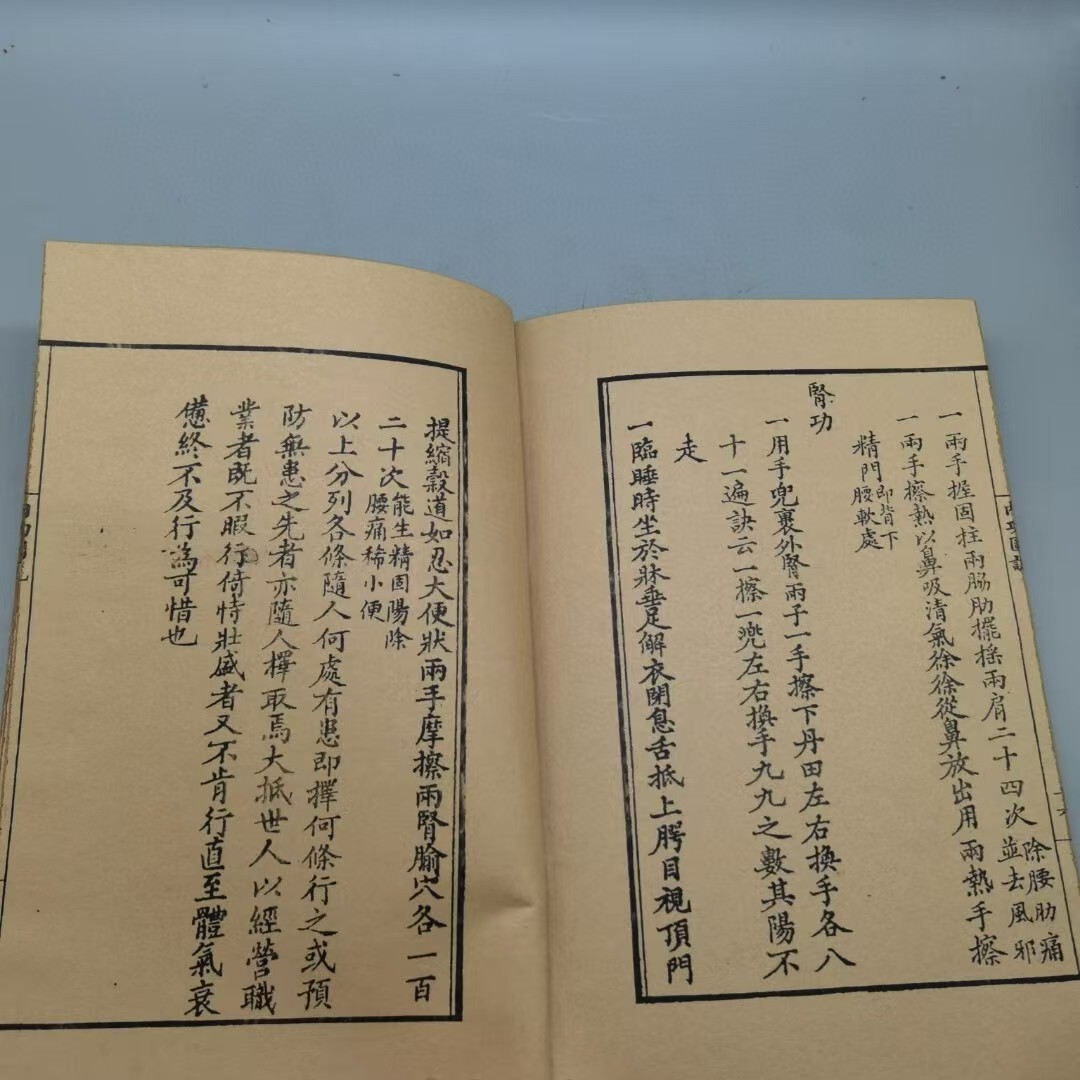 一兩手握固柱兩脇肋擺搖兩肩二十四次除腰肋痛並去風邪
一兩手擦熱以鼻吸清氣徐徐從鼻放出用兩熱手擦
精門即背下腰軟處
腎功
一用手兜裹外腎兩子一手擦下丹田左右換手各八
十一遍訣云一擦一兜左右換手九九之數其陽不
走
一臨睡時坐於牀垂足解衣閉息舌抵上腭目視頂門
提縮穀道如忍大便狀兩手摩擦兩腎腧穴各一百
二十次能生精固陽除腰痛稀小便
以上分列各條隨人何處有患即擇何條行之或預
防無患之先者亦隨人擇取焉大抵世人以經營職
業者既不暇行倚恃壯盛者又不肯行直至體氣衰
憊終不及行為可惜也